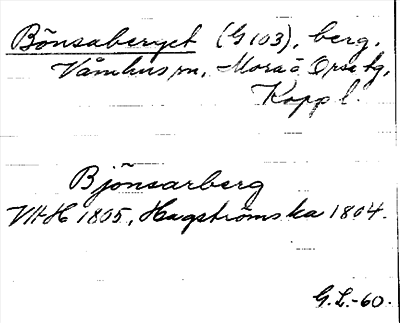 Bönsaberget (G 103), berg,
Våmhus sn, Mora o Orsa tg,
Kopp l.
Bjönsarberg
VttH 1805, Hagströms ka 1804.
G.L.-60.